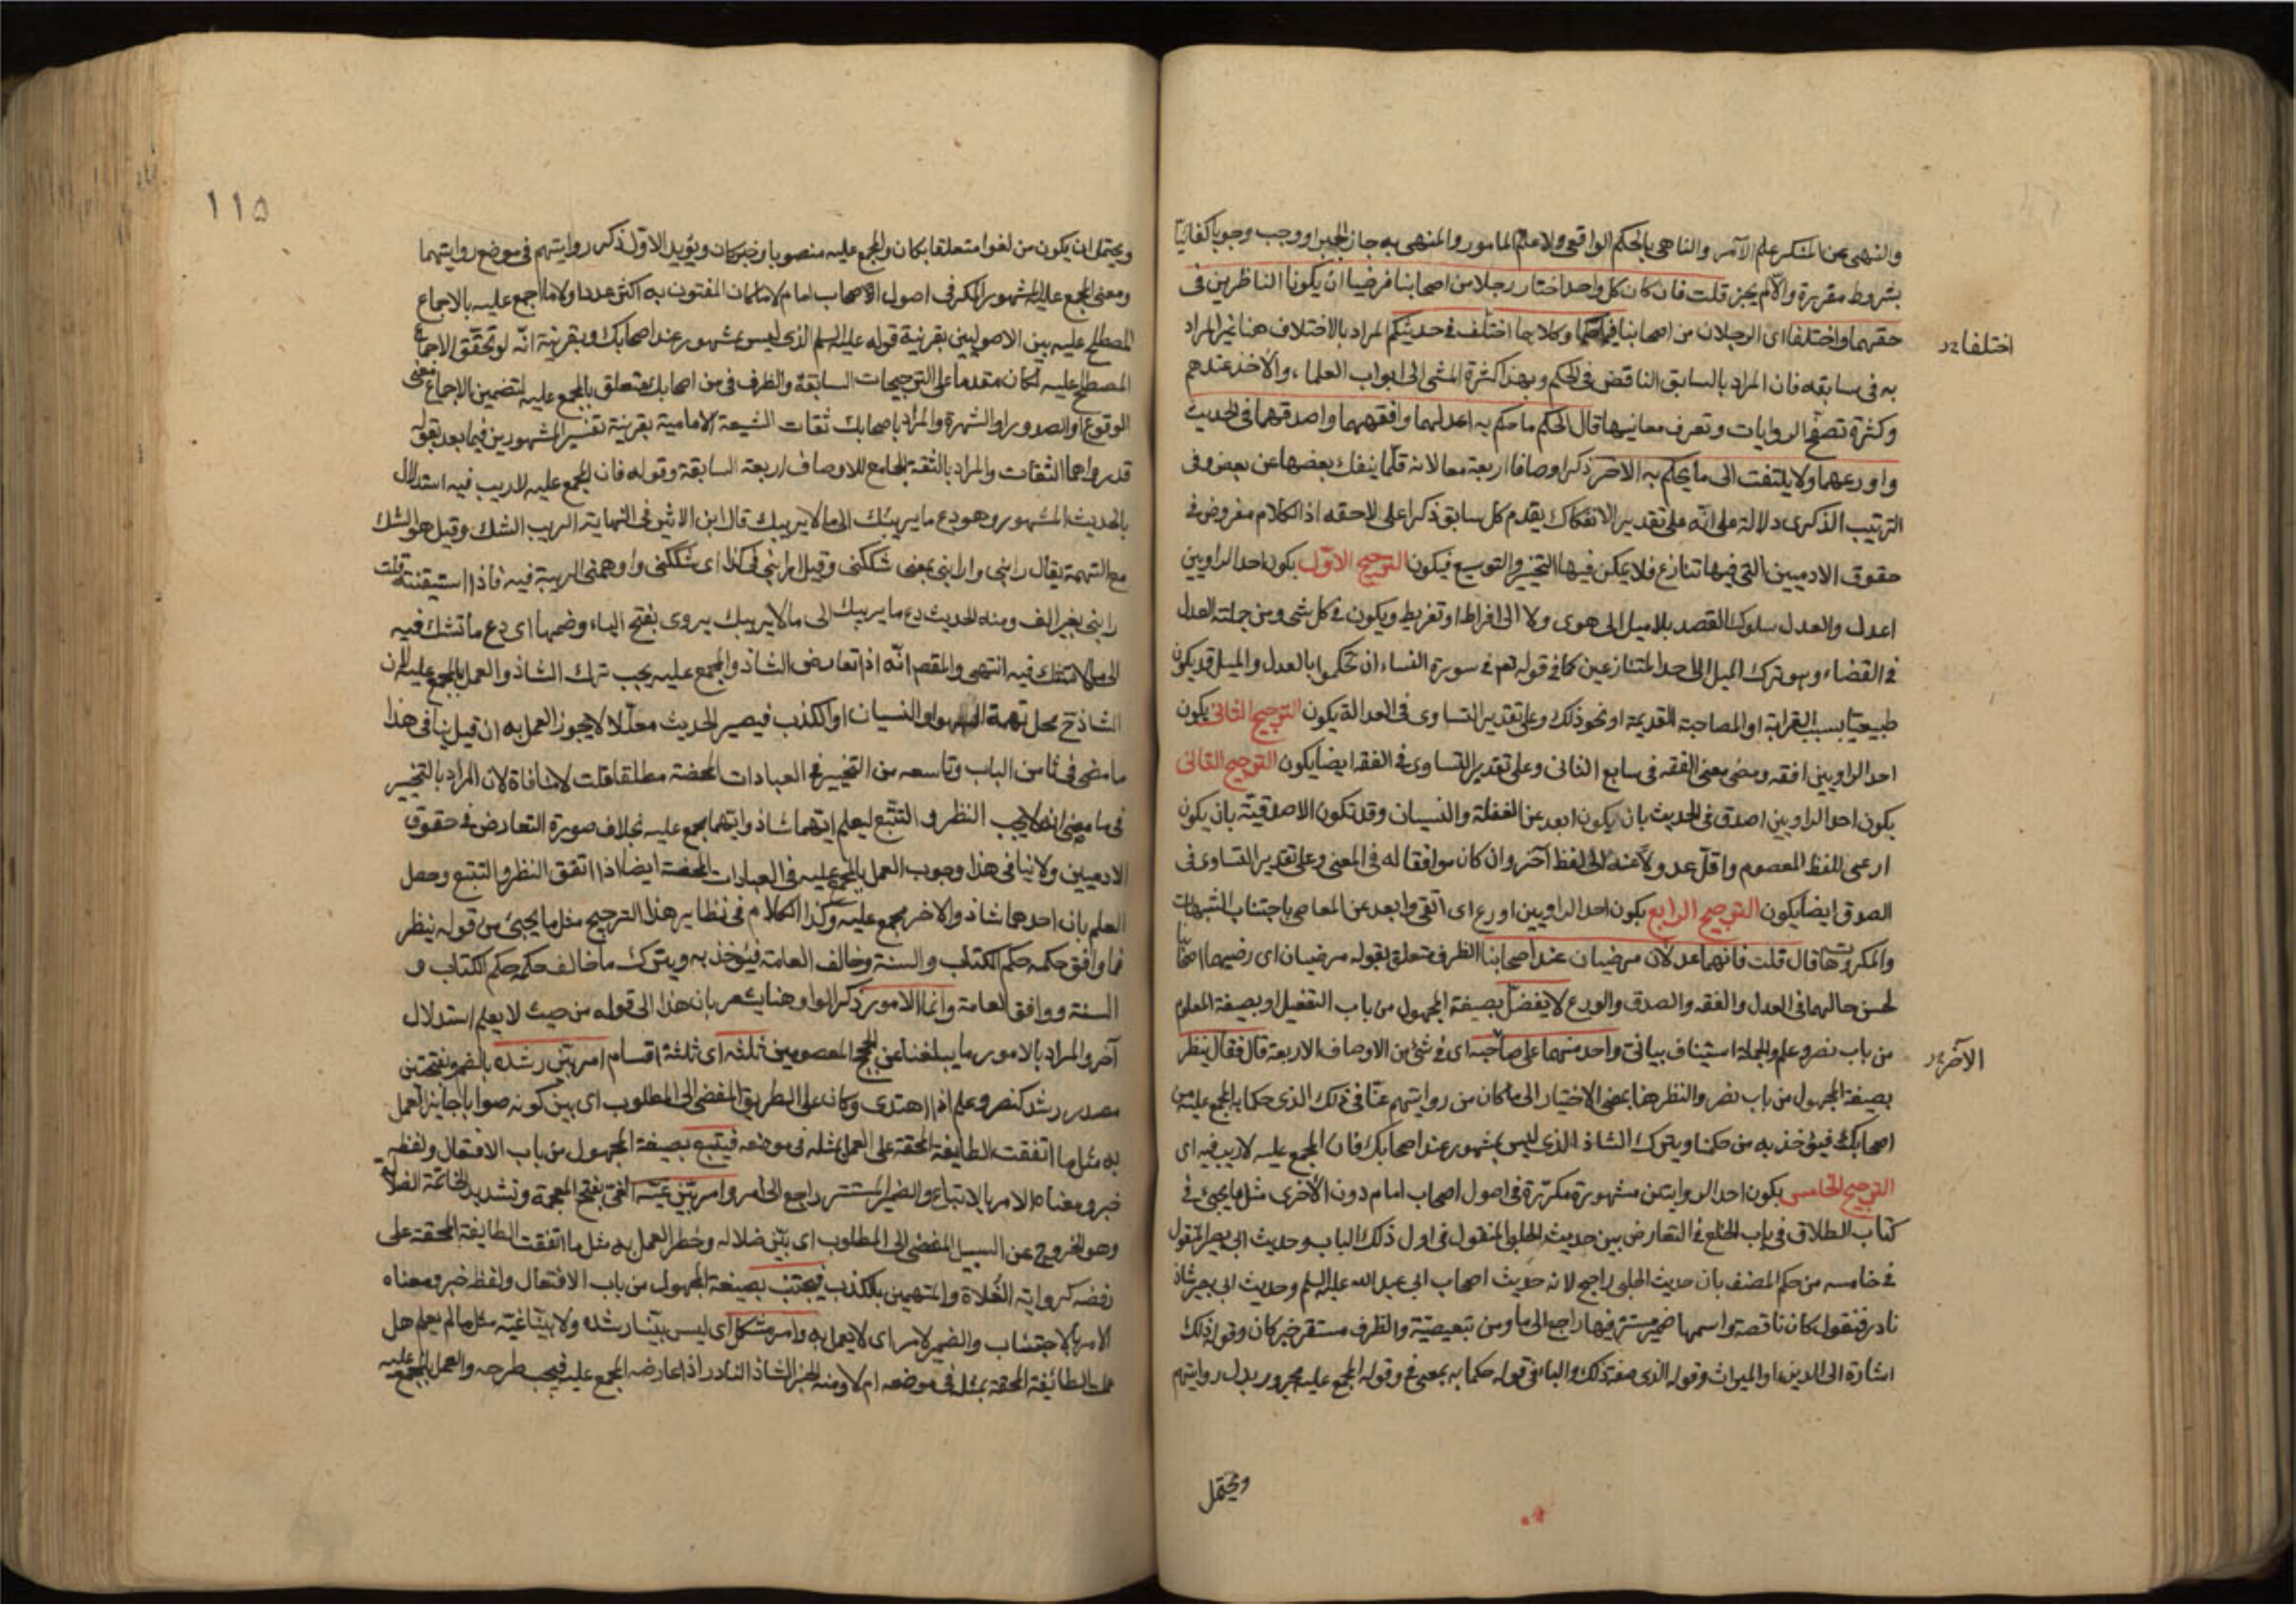 والنهى عن المنكر علم الآمر والناهى بالحكم الواقعى ولا علم المامور والمنهى به جاز الجبر او وجب وجوبا كفائيا
بشروط مقررة والّا لم يجز قلت فان كان كل واحد اختار رجلا من اصحابنا فرضيا ان يكونا الناظرين فى
حقهما واختلفا اى الرجلان من اصحابنا فيما حكما وكلاهما اختلف فى حديثكم المراد بالاختلاف هنا غير المراد
اختلفا
به فى سابقه فان المراد بالسابق التناقض فى الحكم وبهذا كثرة المشى الى ابواب العلماء والاخذ عندهم
وكثرة تصفّح الروايات وتعرف معانيها قال الحكم ما حكم به اعدلهما وافقههما واصدقهما فى الحديث
واورعهما ولا يلتفت الى ما يحكم به الاخر ذكر اوصافا اربعة معا لانه قلّما ينفك بعضها عن بعض وفى
الترتيب الذكرى دلالة على انّه على تقدير الانفكاك يقدم كل سابق ذكرا على لاحقه اذ الكلام مفروض فى
حقوق الادميين التى فيها تنازع فلا يمكن فيها التخيير والتوسيع فيكون الترجيح الاوّل بكون احد الراويين
اعدل والعدل سلوك القصد بلا ميل الى هوى ولا الى افراط او تفريط ويكون فى كل شى ومن جملته العدل
فى القضاء وهو ترك الميل الى احد المتنازعين كما فى قوله تعم فى سورة النساء ان تحكموا بالعدل والميل قد يكون
طبيعيّا بسبب القرابة او المصاحبة القديمة او نحو ذلك وعلى تقدير التساوى فى العدالة يكون الترجيح الثانى بكون
احد الراويين افقه ومضى معنى الفقه فى سابع الثانى وعلى تقدير التساوى فى الفقه ايضا يكون الترجيح الثانى
بكون احد الراويين اصدق فى الحديث بان يكون ابعد عن الغفلة والنسيان وقد تكون الاصدقيّة بان يكون
ارعى للفظ المعصوم واقلّ عدولا عنه الى لفظ آخر وان كان موافقا له فى المعنى وعلى تقدير التساوى فى
الصدق ايضا يكون الترجيح الرابع بكون احد الراويين اورع اى اتقى وابعد عن المعاصى باجتناب الشبهات
والمكروهات قال قلت فانهما عدلان مرضيان عند اصحابنا الظرف متعلق بقوله مرضيان اى رضيهما اصحابنا
لحسن حالهما فى العدل والفقه والصدق والورع لا يفضل بصيغة المجهول من باب التفعيل او بصيغة المعلوم
من باب نصر وعلم والجملة استيناف بيانى واحد منهما على صاحبه اى فى شئ من الاوصاف الاربعة قال فقال ينظر
الآخر
بصيغة المجهول من باب نصر والنظر هنا بمعنى الاختيار الى ما كان من روايتهم عنّا فى ذلك الذى حكما به المجمع عليه من
اصحابك فيؤخذ به من حكمنا ويترك الشاذ الذى ليس بمشهور عند اصحابك فان المجمع عليه لا ريب فيه اى
الترجيح الخامس بكون احد الروايتين مشهورة مكرّرة فى اصول اصحاب امام دون الاخرى مثل ما يجئ فى
كتاب الطلاق فى باب الخلع فى التعارض بين حديث الحلبى المنقول فى اول ذلك الباب وحديث ابى بصير المنقول
فى خامسه من حكم المصنف بان حديث الحلبى راجح لانه حديث اصحاب ابى عبد الله عليه السلم وحديث ابى بصير شاذ
نادر فنقول كان ناقصة واسمها ضمير مستتر فيها راجع الى ما ومن تبعيضيّة والظرف مستقر خبر كان وقوله ذلك
اشارة الى الدين او الميراث وقوله الذى صفة ذلك والباء فى قوله حكما به بمعنى فى وقوله المجمع عليه مجرور بدل روايتهم
ويحتمل
١١٥
ويحتمل ان يكون من لغوا متعلقا بكان والمجمع عليه منصوبا وخبر كان ويؤيد الاوّل ذكر روايتهم فى موضع روايتهما
ومعنى المجمع عليه المشهور المكرر فى اصول اصحاب امام لا ما كان المفتون به اكثر عددا ولا ما اجمع عليه بالاجماع
المصطلح عليه بين الاصوليين بقرينة قوله عليه السلم الذى ليس بمشهور عند اصحابك وبقرينة انّه لو تحقّق الاجماع
المصطلح عليه لكان مقدما على الترجيحات السابقة والظرف فى من اصحابك متعلق بالمجمع عليه لتضمين الاجماع معنى
الوقوع او الصدور او الشهرة والمراد باصحابك ثقات الشيعة الامامية بقرينة تفسير المشهورين فيما بعد بقوله
قد رواهما الثقات والمراد بالثقة الجامع للاوصاف اربعة السابقة وقوله فان المجمع عليه لا ريب فيه استدلال
بالحديث المشهور وهو دع ما يريبك الى ما لا يريبك قال ابن الاثير فى النهاية الريب الشك وقيل هو الشك
مع التهمة يقال رابنى وارابنى بمعنى شككنى وقيل ارابنى فى كذا اى شككنى واوهمنى الريبة فيه فاذا استيقنته قلت
رابنى بغير الف ومنه الحديث دع ما يريبك الى ما لا يريبك يروى بفتح الياء وضمها اى دع ما تشك فيه
الى ما لا تشك فيه انتهى والمقصم انّه اذا تعارض الشاذ والمجمع عليه يجب ترك الشاذ والعمل بالمجمع عليه لان
الشاذ ح محل تهمة السهو او النسيان او الكذب فيصير الحديث معلّلا لا يجوز العمل به ان قيل ينافى هذا
ما مضى فى ثامن الباب وتاسعه من التخيير فى العبادات المحضة مطلقا قلت لا منافاة لان المراد بالتخيير
فى ما مضى انه لا يجب النظر والتتبّع ليعلم ايّهما شاذ وايّهما مجمع عليه بخلاف صورة التعارض فى حقوق
الادميين ولا ينافى هذا وجوب العمل بالمجمع عليه فى العبادات المحضة ايضا اذا اتفق النظر والتتبع وحصل
العلم بان احدهما شاذ والاخر مجمع عليه وكذا الكلام فى نظاير هذا الترجيح مثل ما يجئ من قوله ينظر
فما وافق حكمه حكم الكتاب والسنة وخالف العامة فيؤخذ به ويترك ما خالف حكمه حكم الكتاب و
السنة ووافق العامة وانما الامور ذكر الواو هنا يشعر بان هذا الى قوله من حيث لا يعلم استدلال
آخر والمراد بالامور ما يبلغنا عن الحجج المعصومين ثلثة اى ثلثة اقسام امر بيّن رشده بالضم وبفتحتين
مصدر رشد كنصر وعلم اذا اهتدى وكان على الطريق المفضى الى المطلوب اى بيّن كونه صوابا جايز العمل
به مثل ما اتفقت الطايفة المحقة على العمل بمثله فى موضعه فيتبع بصيغة المجهول من باب الافتعال ولفظه
خبر ومعناه الامر بالاتباع والضمير المستتر راجع الى امر وامر بيّن غيّه الغىّ بفتح المعجمة وتشديد الخاتمة الضلالة
وهو الخروج عن السبيل المفضى الى المطلوب اى بيّن ضلاله وخطر العمل به مثل ما اتفقت الطايفة المحقة على
رفضه كرواية الغلاة والمتهمين بالكذب فيجتنب بصيغة المجهول من باب الافتعال ولفظه خبر ومعناه
الامر بالاجتناب والضمير لامر اى لا يعمل به وامر مشكل اى ليس بيّنا رشده ولا بيّنا غيّه مثل ما لم يعلم هل
عملت الطائفة المحقة بمثله فى موضعه ام لا ومنه الخبر الشاذ النادر اذا عارضه المجمع عليه فيجب طرحه والعمل بالمجمع عليه